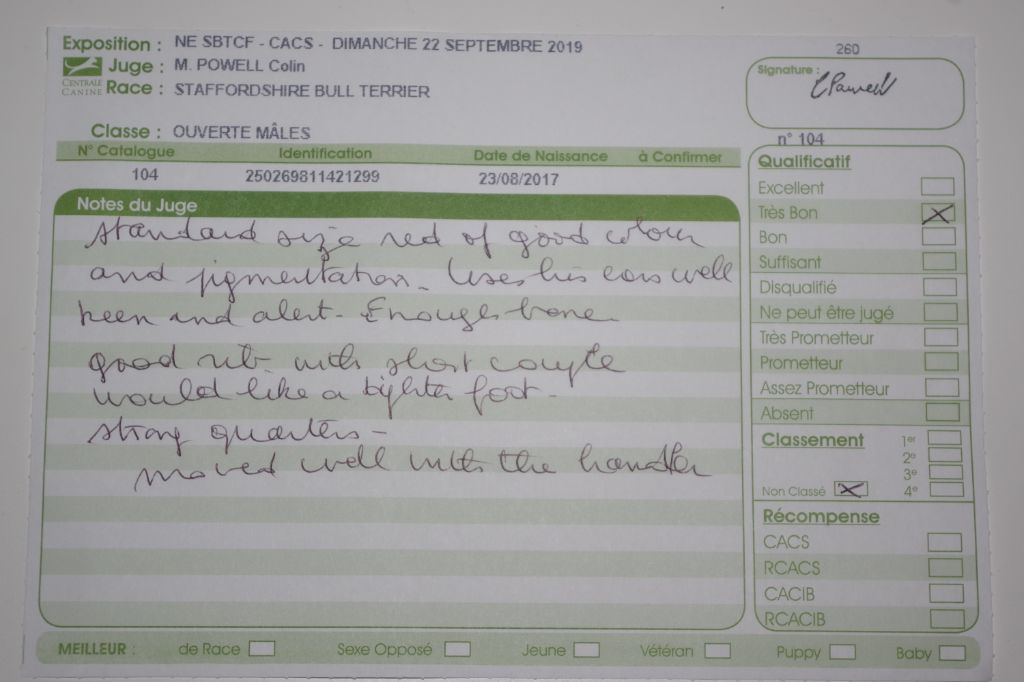 Exposition : NE SBTCF - CACS - DIMANCHE 22 SEPTEMBRE 2019
260
Juge : M. POWELL Colin
CENTRALE CANINE
Race : STAFFORDSHIRE BULL TERRIER
Signature : C Powell
Classe : OUVERTE MÂLES
n° 104
N° Catalogue Identification Date de Naissance à Confirmer
104 250269811421299 23/08/2017
Notes du Juge
standard size red of good colour
and pigmentation. Uses his ears well
keen and alert - Enough bone
good rib with short couple
would like a tighter foot -
strong quarters -
moved well with the handler
Qualificatif
Excellent
Très Bon
Bon
Suffisant
Disqualifié
Ne peut être jugé
Très Prometteur
Prometteur
Assez Prometteur
Absent
Classement
1er
2e
3e
Non Classé 4e
Récompense
CACS
RCACS
CACIB
RCACIB
MEILLEUR : de Race Sexe Opposé Jeune Vétéran Puppy Baby